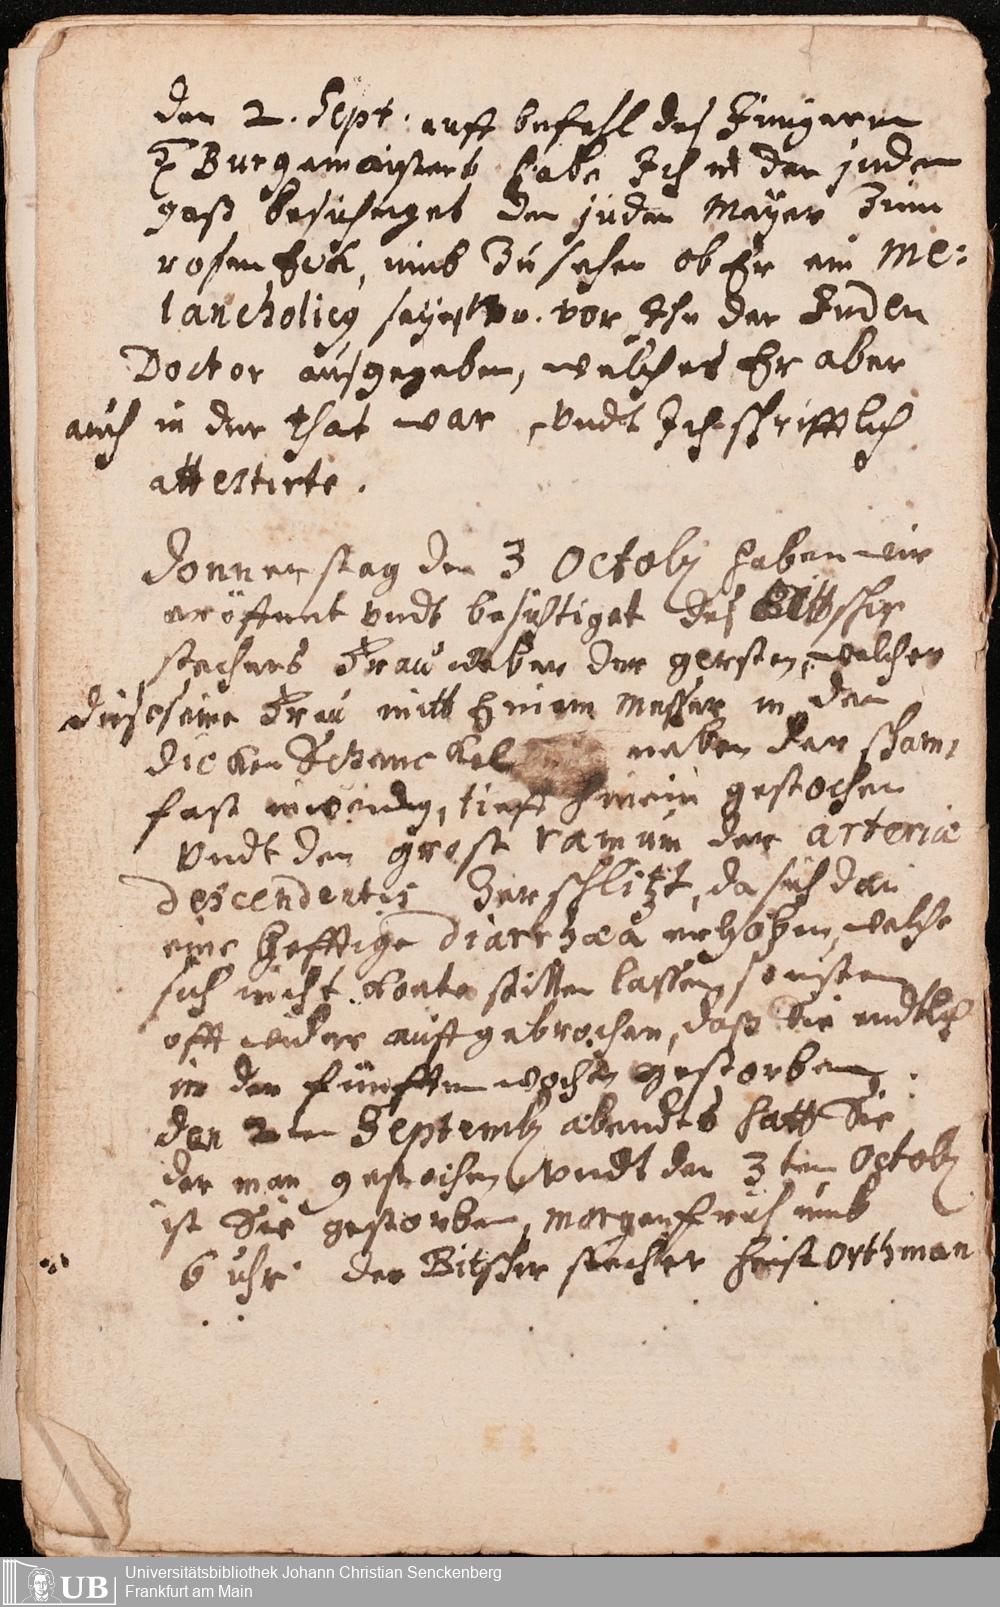 den 2. Sept: auff befehl des Jüngern
H Burgemeisters habe Ich in der juden
gaß besichtiget den juden Mayer zum
rosen Eck, umb zu sehen ob Er ein Me-
lancholicq seye, vor Ihn der Juden
Doctor ausgegeben, welches Er aber
auch in der that war, undt Ich schrifftlich
attestirte.
Donnerstag den 3 Octobr haben wir
eröffnet undt besichtiget des Bittschir
stechers Frau über der gersten, welcher
diese seine Frau mitt Einem Messer in den
dicken Schenckel neben der scham,
fast inwendig, tieff hinein gestochen
Undt den grosen ramum der arteriæ
descendentis zerschlitzt, da sich dan
eine hefftige diarrhæa erhoben, welche
sich nicht konte stillen lassen, sonsten
offt wider auffgebrochen, daß Sie endtlich
in der fünfften wochen gestorben.
den 2ten Septembr abendts hatt Sie
der man gestochen undt den 3ten Octobr
ist Sie gestorben, morgens früh umb
6 uhr. der Bitschir stecher heist Orthman
Universitätsbibliothek Johann Christian Senckenberg
Frankfurt am Main
UB